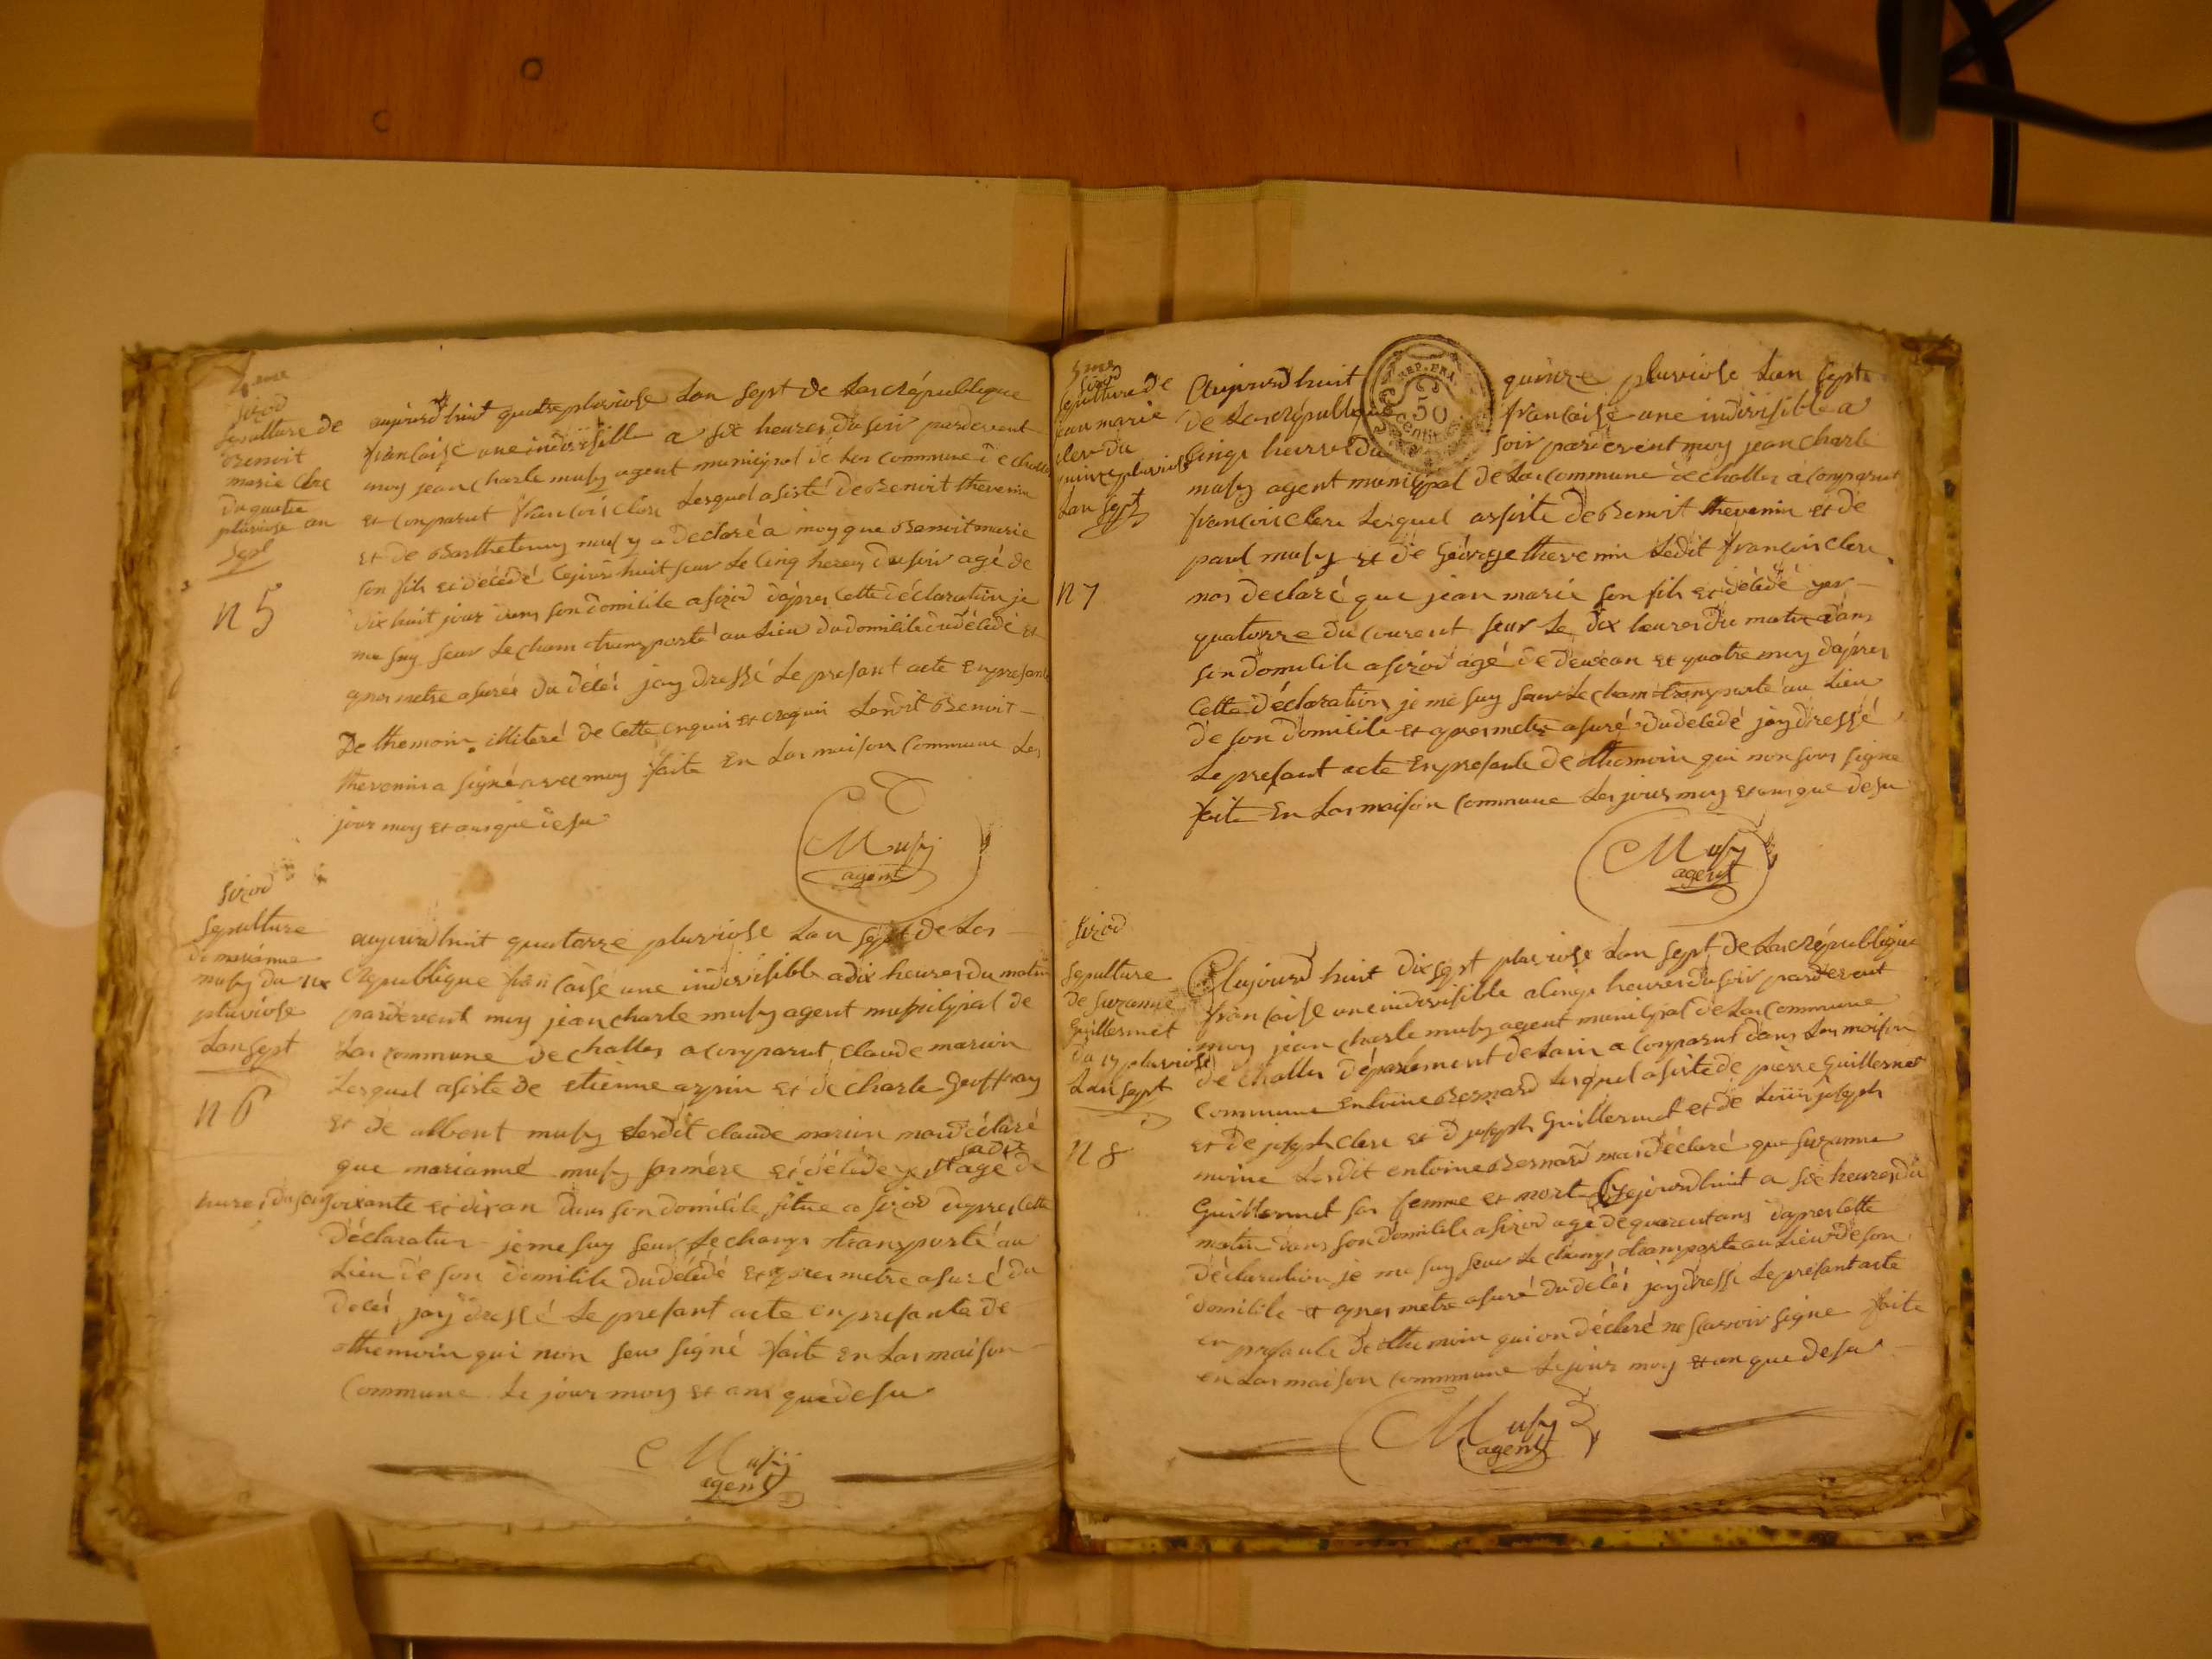 4.eme
sizod
sepulture de
Benoit
marie clere
du quatre
pluviose an
sept
n 5
aujourd'huit quatre pluviose Lan sept de Las République
francaise une indivisible a six heures du soir pardevent
moy jean charle musy agent municipal de Las commune de challes
et comparut francois clere Lesquel asisté de Benoit thevenin
et de Barthelemy musy a declaré a moy que Benoit marie
son fils et décédé cejourdhuit seur Le cinq heures du soir agé de
dix huit jour dans son domicile a sizod dápres cette déclaration je
me suy seur Le cham transporté au Lieu du domicile du décédé et
apres metre asurés du décés jay dressé Le presant acte en presante
De themoin illiteré de cette enquis et requis Lesdit Benoit
thevenin a signé avec moy faite En Las maison commune Les
jour moy et ans que desu
Musy
agent
sizod
sepulture
de marianne
musy du 14
pluviose
Lan sept
n 6
aujourdhuit quatorze pluviose Lan sept de Las
République francaise une indivisible a dix heures du matin
pardevent moy jean charle musy agent municipal de
Las commune de challes a comparut claude marion
Lesquel asiste de etienne arpin et de charle Geoffray
et de albent musy Lesdit claude marion mas déclaré
que marianne musy sa mére et décéde yer a dix
heures du soir agé de
soixante et dix an dans son domicile situe a sizod dápres cette
déclaration je me suy seur Le champ transporté au
Lieu de son domicile du décédé et apres metre asuré du
décés jay dressé Le presant acte en presante de
themoin qui non seus signé faite en Las maison
commune Le jour moy et ans que desu
Musy
agent
5.me
sizod
sepulture de
jean marie
clere du
quinze pluviose
Lan sept
n 7
REP. FRA.
50
centimes
Aujourdhuit quinze pluviose Lan sept
de Las République francaise une indivisible a
cinqs heures du soir pardevent moy jean charle
musy agent municipal de Las commune de challes a comparut
francois clere Lesquel assiste de Benoit thevenin et de
paul musy et de George thevenin Ledit francois clere
mas declaré que jean marie son fils et décédé yer
quatorze du courent seur Le dix heures du matin dans
son domicile a sizod agé de deux an et quatre moy dápres
cette déclaration je me suy seur Le cham transporté au Lieu
de son domicile et apres metre asuré du décédé jay dressé
Le presant acte En presante de themoin qui non sous signe
faite En Las maison commune Les jours moy et ans que desu
Musy
agent
sizod
sepulture
de suzanne
Guillermet
du 17 pluviose
Lan sept
n 8
Aujourdhuit dix sept pluviose Lan sept de Las République
francaise une indivisible a cinqs heures du soir pardevent
moy jean charle musy agent municipal de Las commune
de challes département de Lain a comparut dans Las maison
commune entoine Bernard Lesquel asiste de pierre Guillermet
et de joseph clere et d joseph Guillermet et de Louis joseph
moine Lesdit entoine Bernard mas déclaré que suzanne
Guillermet sas femme et mort cejourdhuit a six heures du
matin dans son domicile a sizod agé de quarentans dápres cette
déclaration je me suy seur Le champ transporte au Lieu de son
domicile et apres metre asuré du décés jay dressé Le presant acte
en presante de themoin qui on déclaré ne scavoir signe faite
en Las maison commmune Le jour moy et an que desu
Musy
agent